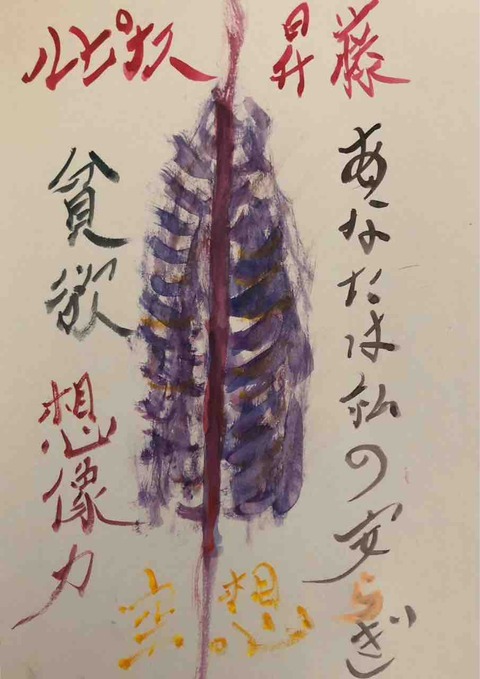 ルピナス
昇藤
あなたは私の安らぎ
貪欲
想像力
空想